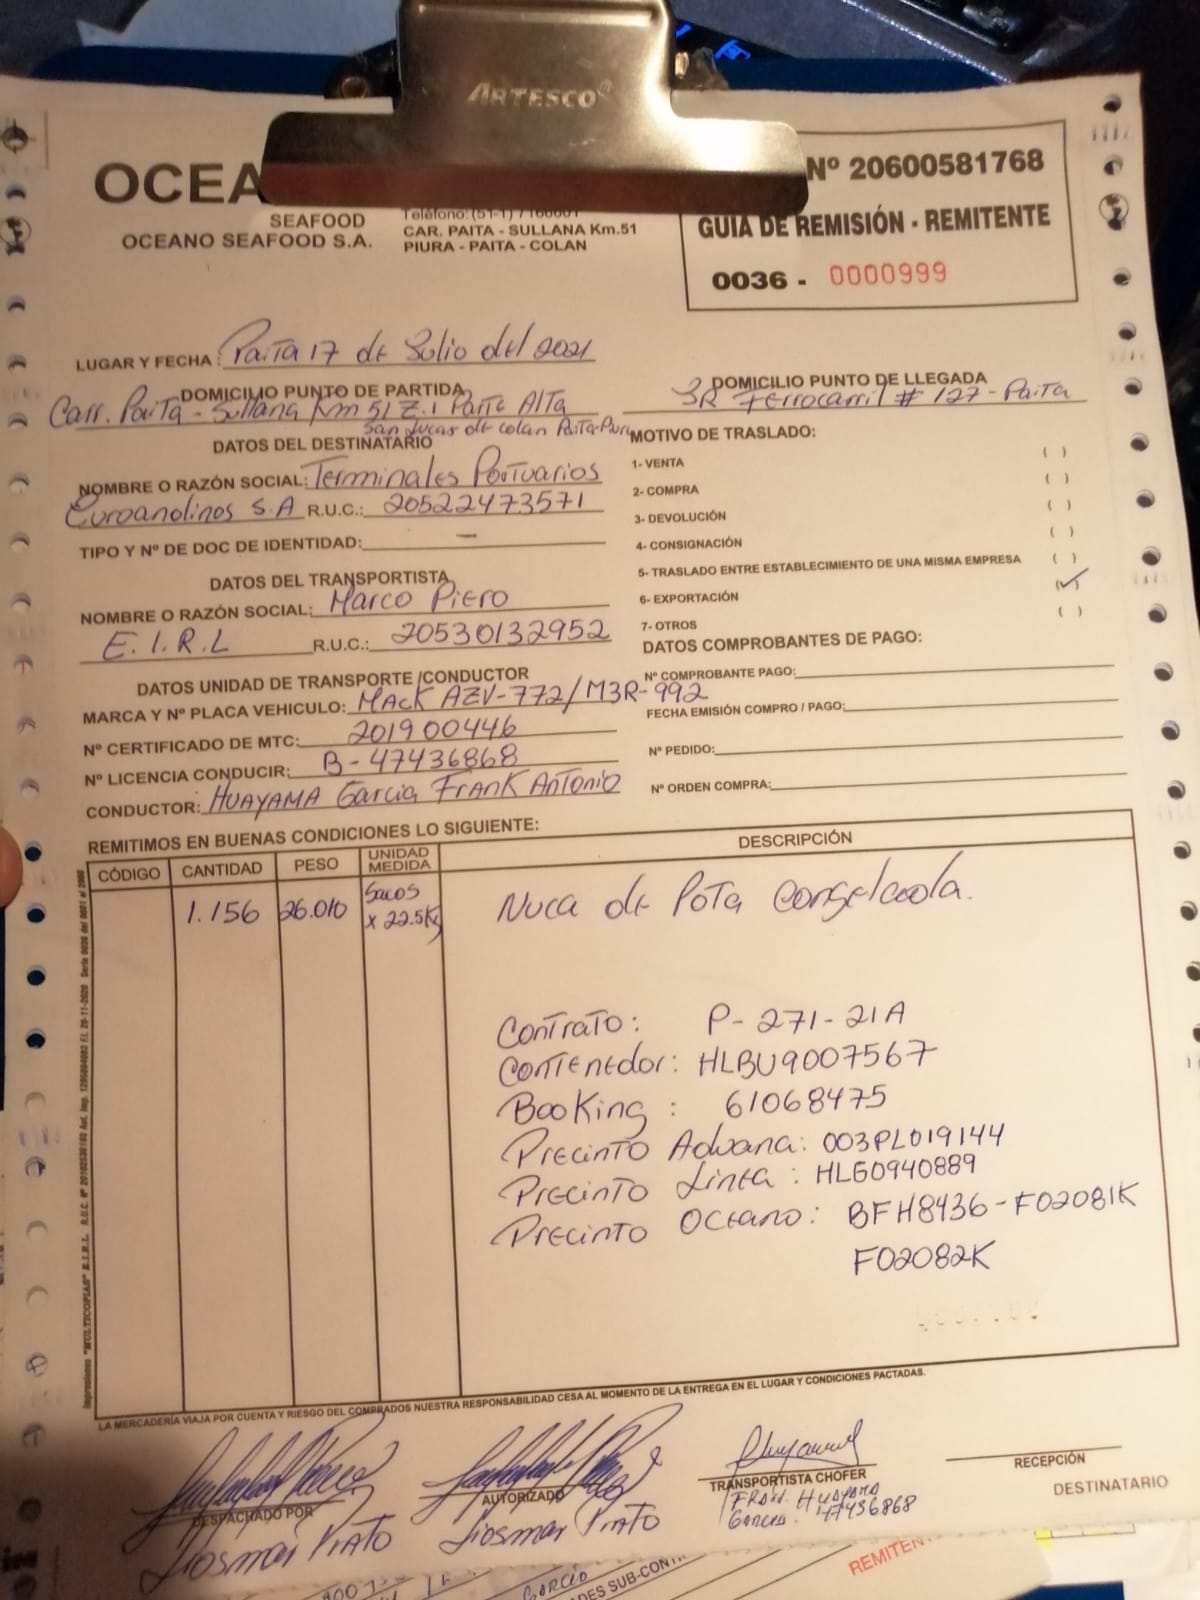 ARTESCO
OCEA
Nº 20600581768
SEAFOOD
OCEANO SEAFOOD S.A.
Teléfono: (51-1) 7166001
CAR. PAITA - SULLANA Km.51
PIURA - PAITA - COLAN
GUIA DE REMISIÓN - REMITENTE
0036 - 0000999
LUGAR Y FECHA: Paita 17 de Julio del 2021
DOMICILIO PUNTO DE PARTIDA
Carr. Paita - Sullana Km 51 Z.I Parte Alta
San Lucas de Colan Paita-Piura
DOMICILIO PUNTO DE LLEGADA
JR Ferrocarril # 127 - Paita
DATOS DEL DESTINATARIO
NOMBRE O RAZÓN SOCIAL: Terminales Portuarios
Euroandinos S.A R.U.C.: 20522473571
TIPO Y Nº DE DOC DE IDENTIDAD: —
MOTIVO DE TRASLADO:
1- VENTA ( )
2- COMPRA ( )
3- DEVOLUCIÓN ( )
4- CONSIGNACIÓN ( )
5- TRASLADO ENTRE ESTABLECIMIENTO DE UNA MISMA EMPRESA ( )
6- EXPORTACIÓN (✓)
7- OTROS ( )
DATOS DEL TRANSPORTISTA
NOMBRE O RAZÓN SOCIAL: Marco Piero
E.I.R.L R.U.C.: 20530132952
DATOS COMPROBANTES DE PAGO:
Nº COMPROBANTE PAGO:
FECHA EMISIÓN COMPRO / PAGO:
Nº PEDIDO:
Nº ORDEN COMPRA:
DATOS UNIDAD DE TRANSPORTE /CONDUCTOR
MARCA Y Nº PLACA VEHICULO: MACK AZV-772/M3R-992
Nº CERTIFICADO DE MTC: 201900446
Nº LICENCIA CONDUCIR: B-47436868
CONDUCTOR: HUAYAMA Garcia Frank Antonio
REMITIMOS EN BUENAS CONDICIONES LO SIGUIENTE:
CÓDIGO CANTIDAD PESO UNIDAD MEDIDA DESCRIPCIÓN
1.156 26.010 Sacos x 22.5Kg Nuca de Pota Congelada.
Contrato: P-271-21A
Contenedor: HLBU9007567
Booking: 61068475
Precinto Aduana: 003PL019144
Precinto Linea: HLG0940889
Precinto Oceano: BFH8436-F02081K
F02082K
LA MERCADERÍA VIAJA POR CUENTA Y RIESGO DEL COMPRADOS NUESTRA RESPONSABILIDAD CESA AL MOMENTO DE LA ENTREGA EN EL LUGAR Y CONDICIONES PACTADAS.
DESPACHADO POR
Liosmar Prato
AUTORIZADO
Liosmar Prato
TRANSPORTISTA CHOFER
Frank Huayama
Garcia. 47436868
RECEPCIÓN
DESTINATARIO
REMITEN